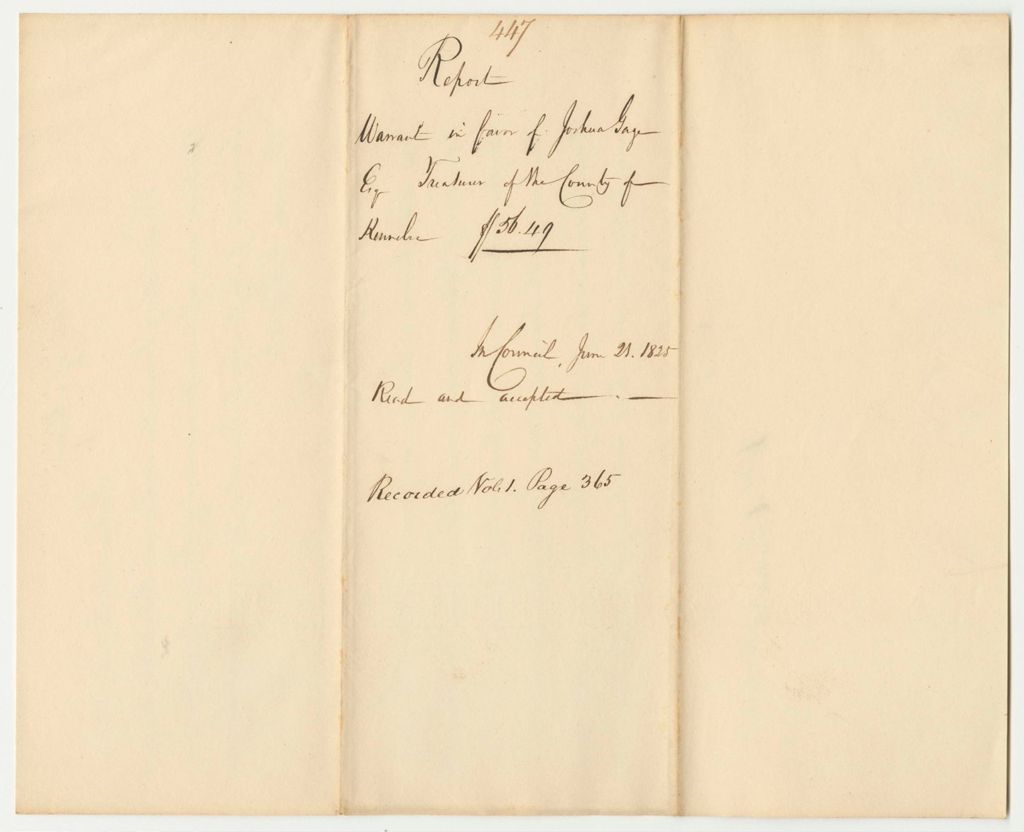 447
Report
Warrant in favor of Joshua Gage
Esq Treasurer of the County of
Kennebec $56.49
In Council, June 21. 1825
Read and accepted.
Recorded Vol: 1. Page 365